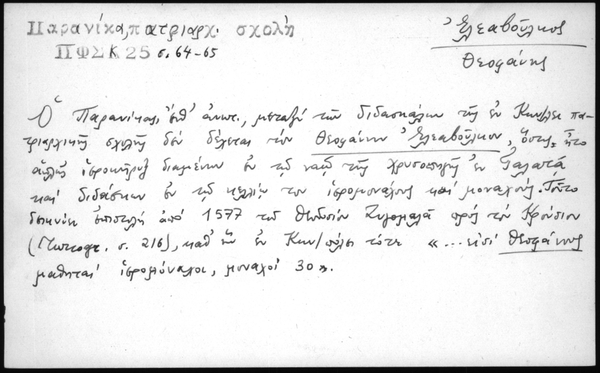 Παρανίκα, πατριαρχ. σχολή
ΠΦΣΚ 25 σ. 64-65
Ἐλεαβοῦλκος
Θεοφάνης
Ὁ Παρανίκας, ἔνθ' ἀνωτ., μεταξὺ τῶν διδασκάλων τῆς ἐν Κων/λει πα-
τριαρχικῆς σχολῆς δὲν δέχεται τὸν Θεοφάνην Ἐλεαβοῦλκον, ὅστις ἦτο
ἁπλῆς ἱεροκῆρυξ διαμένων ἐν τῷ ναῷ τῆς Χρυσοπηγῆς ἐν Γαλατᾷ
καὶ διδάσκων ἐν τῷ κελλίῳ του ἱερομονάχους καὶ μοναχούς. Τοῦτο
δεικνύει ἐπιστολὴ ἀπὸ 1577 τοῦ Θεοδοσίου Ζυγομαλᾶ πρὸς τὸν Κρούσιον
(Turcogr. σ. 216), καθ' ἣν ἐν Κων/πόλει τότε «... εἰσὶ Θεοφάνους
μαθηταὶ ἱερομόναχοι, μοναχοὶ 30».